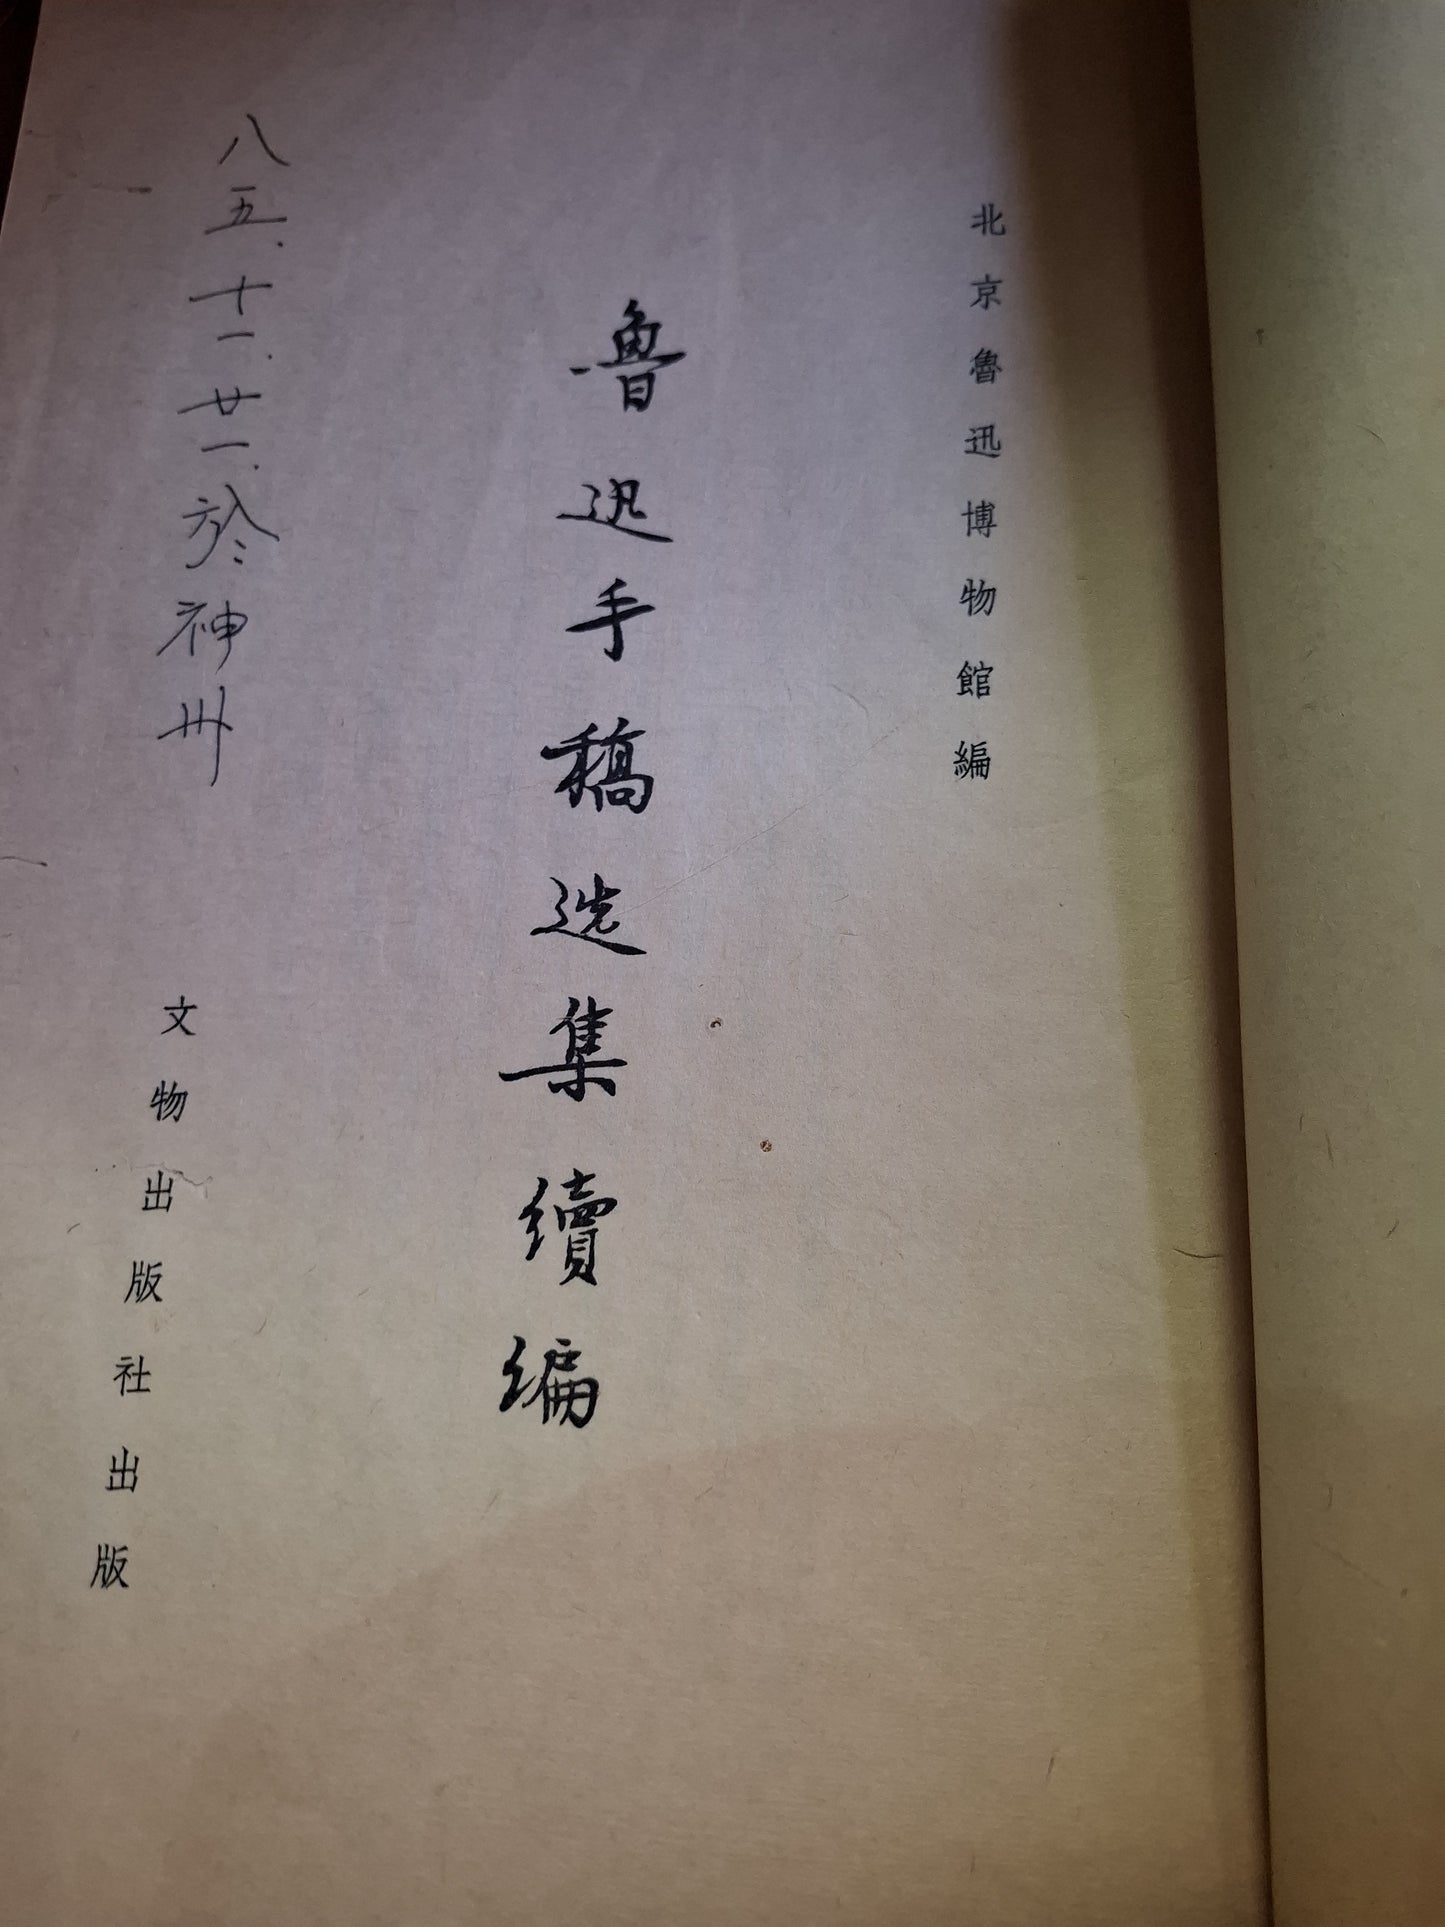 北京魯迅博物館編
魯迅手稿选集續编
八五.十一.廿一.於神州
文物出版社出版